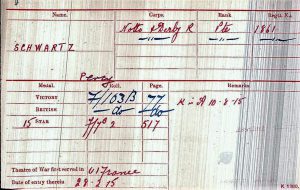 Name. Corps. Rank. Regtl. No.
SCHWARTZ Notts & Derby R Pte 1861
Percy
Medal. Roll. Page. Remarks
VICTORY F/103B 77 K in A 10-8-15
BRITISH do do
15 STAR 517
Theatre of War first served in (1) France
Date of entry therein 28-2-15